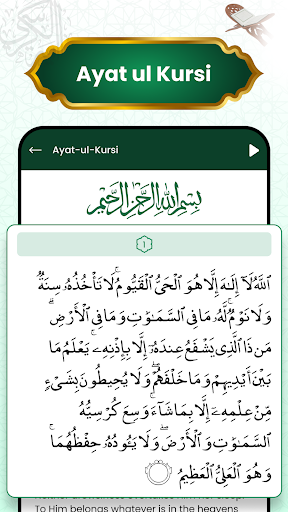 Ayat ul Kursi
Ayat-ul-Kursi
بِسْمِ اللهِ الرَّحْمٰنِ الرَّحِيْمِ
١
ٱللَّهُ لَآ إِلَٰهَ إِلَّا هُوَ ٱلْحَىُّ ٱلْقَيُّومُ ۚ لَا تَأْخُذُهُۥ سِنَةٌ
وَلَا نَوْمٌ ۚ لَّهُۥ مَا فِى ٱلسَّمَٰوَٰتِ وَمَا فِى ٱلْأَرْضِ ۗ
مَن ذَا ٱلَّذِى يَشْفَعُ عِندَهُۥٓ إِلَّا بِإِذْنِهِۦ ۚ يَعْلَمُ مَا
بَيْنَ أَيْدِيهِمْ وَمَا خَلْفَهُمْ ۖ وَلَا يُحِيطُونَ بِشَىْءٍ
مِّنْ عِلْمِهِۦٓ إِلَّا بِمَا شَآءَ ۚ وَسِعَ كُرْسِيُّهُ
ٱلسَّمَٰوَٰتِ وَٱلْأَرْضَ ۖ وَلَا يَـُٔودُهُۥ حِفْظُهُمَا ۚ
وَهُوَ ٱلْعَلِىُّ ٱلْعَظِيمُ
To Him belongs whatever is in the heavens